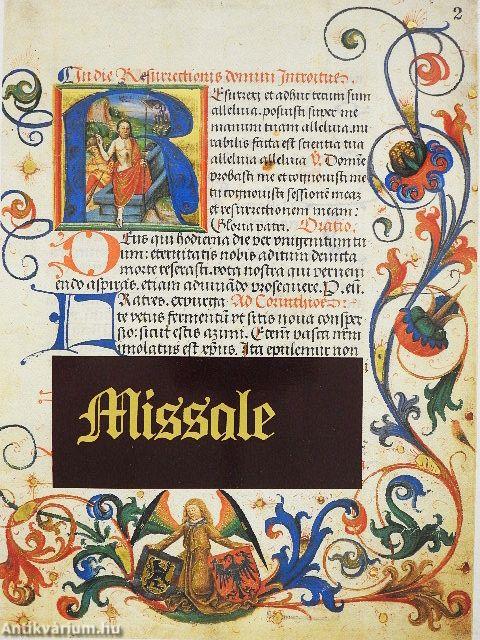 2
In die Resurrectionis domini Introitus
Resurrexi et adhuc tecum sum
alleluia. posuisti super me
manum tuam alleluia. mi
rabilis facta est scientia tua
alleluia alleluia V. Domine
probasti me et cognouisti me
tu cognouisti sessionem meaz
et resurrectionem meam:
Gloria patri. Oratio.
Deus qui hodierna die per unigenitum tu
um: eternitatis nobis aditum deuicta
morte reserasti. vota nostra qui preueni
endo aspiras. etiam adiuuando prosequere. P. eun.
Fratres. expurga Ad Corinthios
te vetus fermentum vt sitis noua consper
sio: sicut estis azimi. Etenim pasca nrm
imolatus est xpus. Ita epulemur non
Missale
Antikvárium.hu